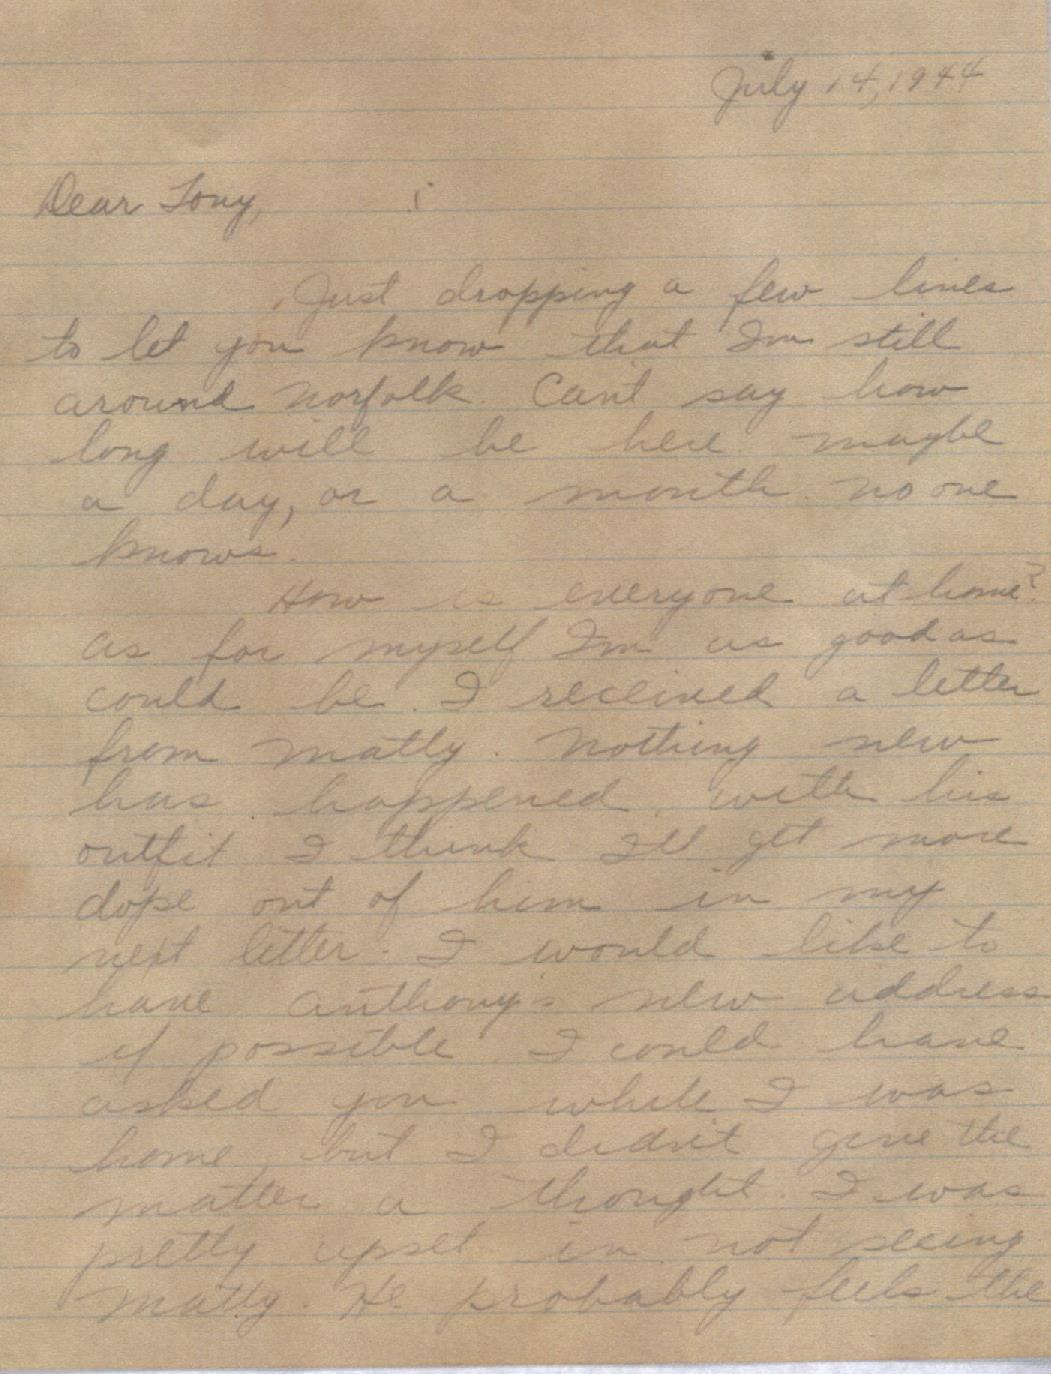 July 14, 1944
Dear Tony,
Just dropping a few lines
to let you know that I'm still
around Norfolk. Can't say how
long will be here maybe
a day, or a month. no one
knows.
How is everyone at home?
as for myself I'm as good as
could be. I received a letter
from Matty. Nothing new
has happened with his
outfit I think I'll get more
dope out of him in my
next letter. I would like to
have Anthony's new address
if possible I could have
asked you while I was
home, but I didn't give the
matter a thought. I was
pretty upset in not seeing
Matty. He probably feels the